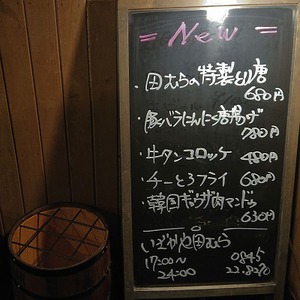 = New =
・田むらの特製とり唐
680円
・豚バラにんにく唐揚げ
780円
・牛タンコロッケ 480円
・チーとろフライ 680円
・韓国ギョウザ肉マンドゥ
630円
いざかや田むら
17:00〜 0845
24:00 22.8270